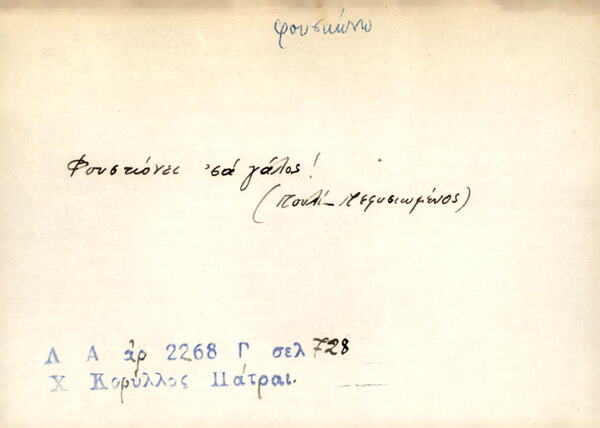 φουσκώνω
Φουσκώνει 'σά γάλος!
(Πουλί - Πεφυσιωμένος)
Λ Α ἀρ 2268 Γ σελ 728
Χ Κορύλλος Πάτραι.